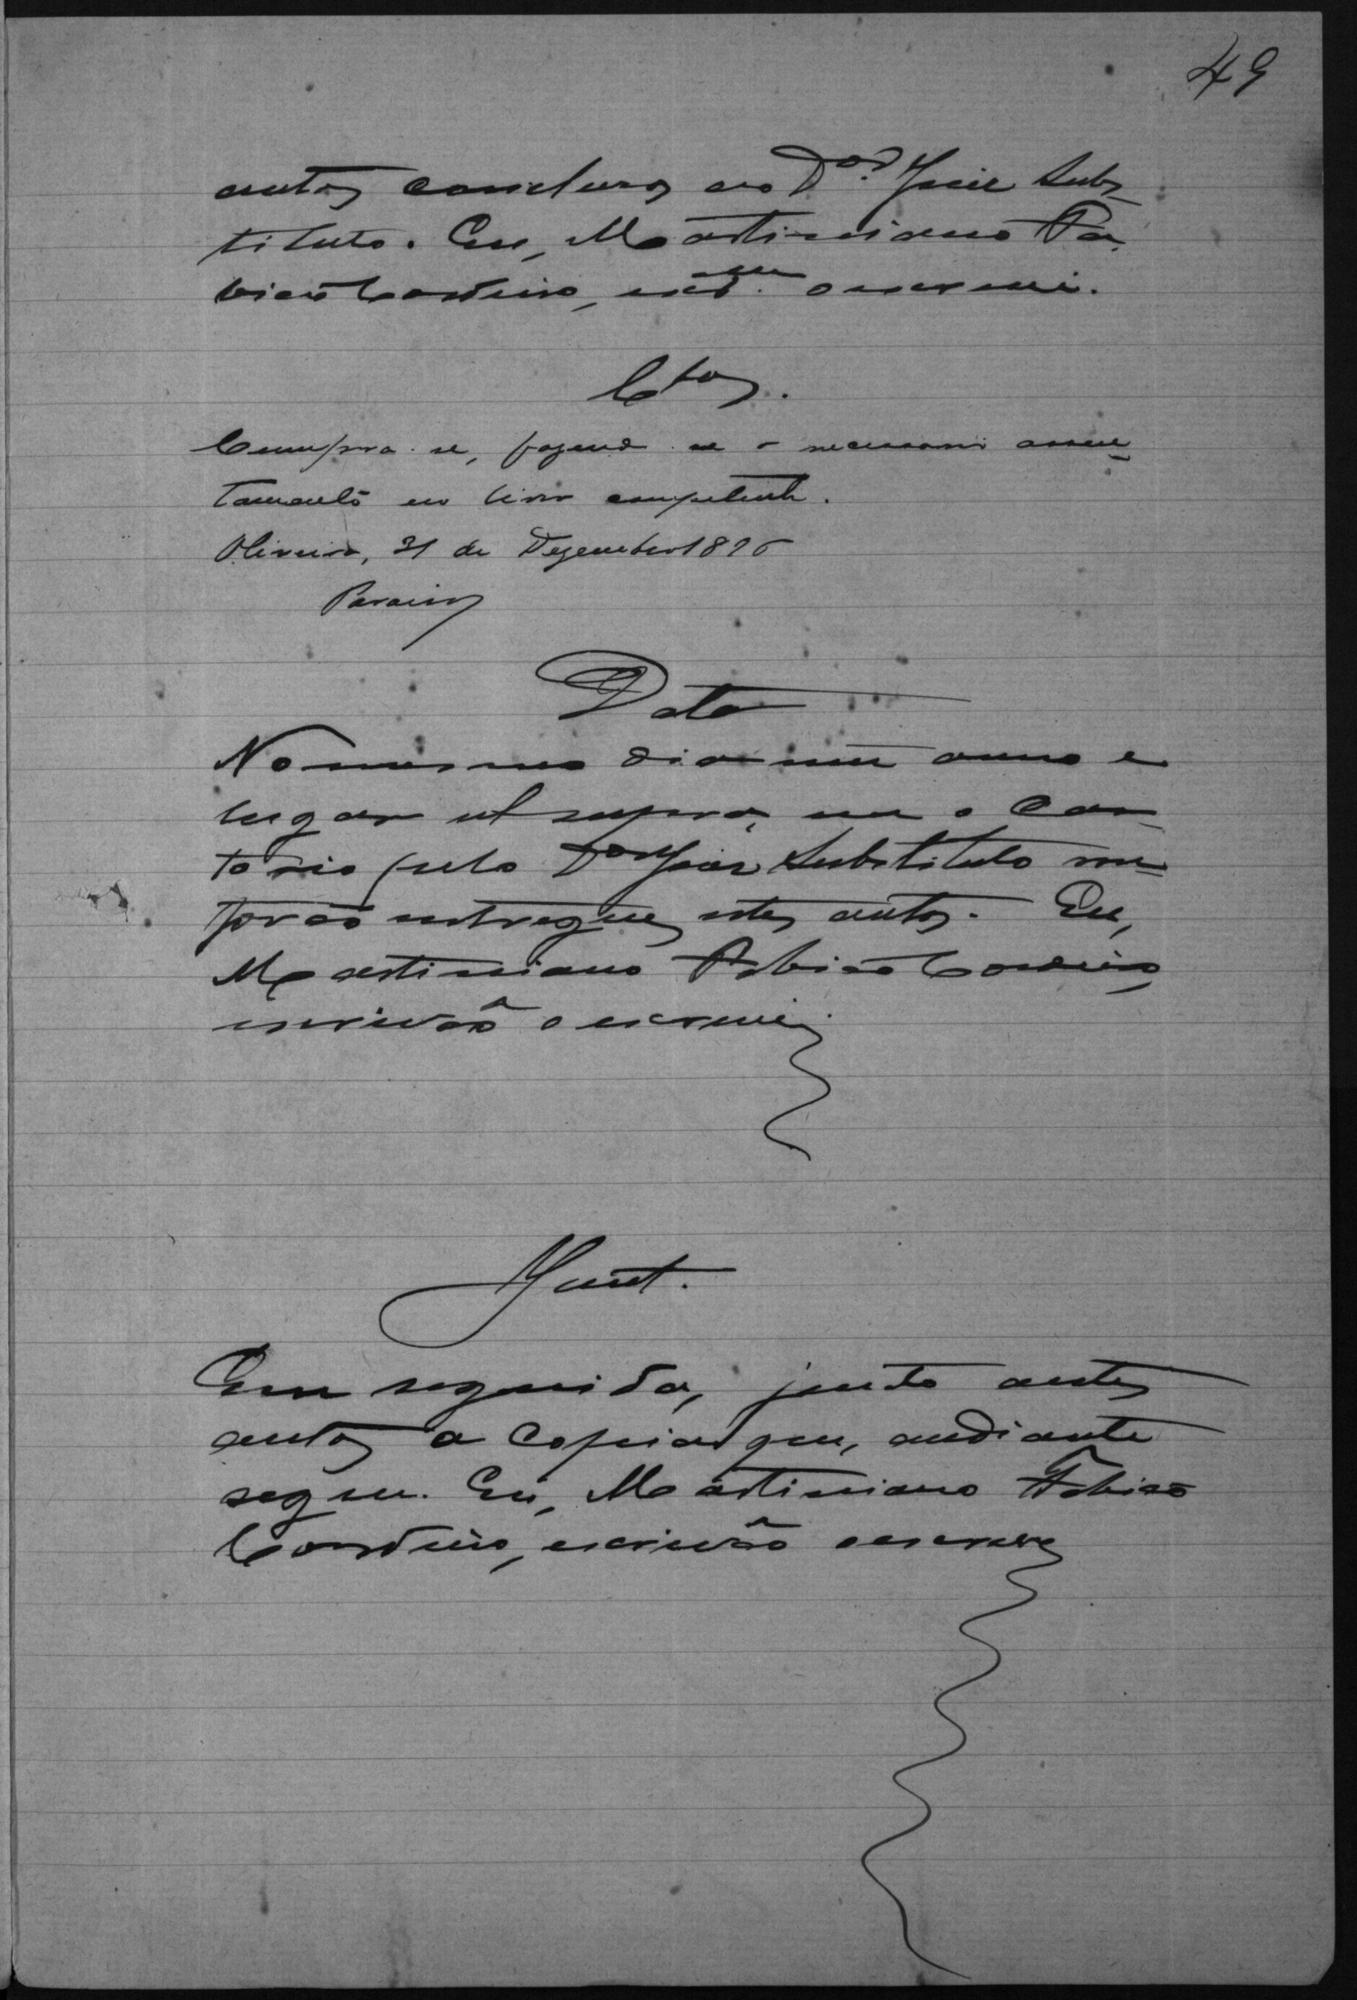 49
autos conclusos ao D.or Juiz Subs-
tituto. Eu, Martiniano Fa-
bião Cordeiro, o escrevi.
Clos.
Cumpra-se, fazendo-se o necessario assen-
tamento no livro competente.
Oliveira, 31 de Dezembro 1896
Data
No mesmo dia mez anno e
lugar ut supra, em o car-
torio pelo Dor Juiz Substituto me
forão entregues estes autos. Eu,
Martiniano Fabião Cordeiro,
escrivão o escrevi.
Junt.
Em seguida, junto a estes
autos a copia que, adiante
segue. Eu, Martiniano Fabião
Cordeiro, escrivão o escrevi